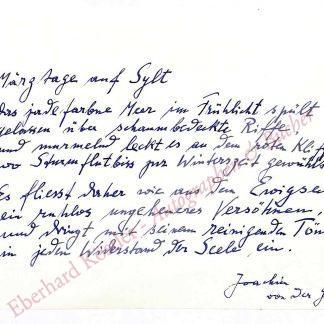 Märztage auf Sylt
Das jadefarbne Meer im Frühlicht spült
gelassen über schaumbedeckte Riffe
und murmelnd leckt es an dem roten Kliff
wo Sturmflutbiss zur Winterszeit gewühlt
Es fliesst daher wie aus den Ewigsei
ein ruhlos ungeheueres Versöhnen,
und dringt mit seinem reinigenden Tön
in jeden Widerstand der Seele ein.
Joachim
von der G
Eberhard Köstler Autographen